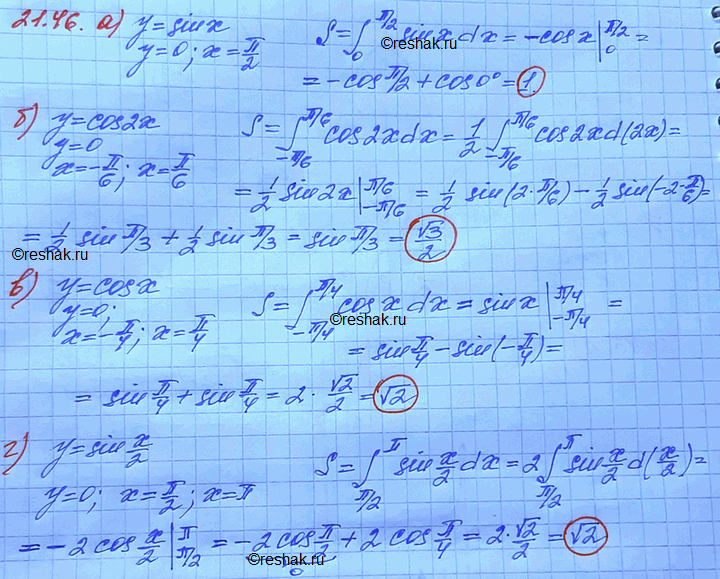 21.46. а) y=sinx
y=0; x=π/2
S=∫₀^{π/2} sinx dx = -cosx|₀^{π/2} =
= -cos π/2 + cos0° = 1
©reshak.ru
б) y=cos2x
y=0
x=-π/6; x=π/6
S=∫_{-π/6}^{π/6} cos2xdx = 1/2 ∫_{-π/6}^{π/6} cos2xd(2x)=
= 1/2 sin2x|_{-π/6}^{π/6} = 1/2 sin(2·π/6) - 1/2 sin(-2·π/6)=
= 1/2 sin π/3 + 1/2 sin π/3 = sin π/3 = √3/2
©reshak.ru
в) y=cosx
y=0;
x=-π/4; x=π/4
S=∫_{-π/4}^{π/4} cosx dx = sinx|_{-π/4}^{π/4} =
©reshak.ru
= sin π/4 - sin(-π/4)=
= sin π/4 + sin π/4 = 2·√2/2 = √2
г) y=sin x/2
y=0; x=π/2; x=π
S=∫_{π/2}^{π} sin x/2 dx = 2∫_{π/2}^{π} sin x/2 d(x/2)=
= -2cos x/2|_{π/2}^{π} = -2cos π/2 + 2cos π/4 = 2·√2/2 = √2
0
©reshak.ru